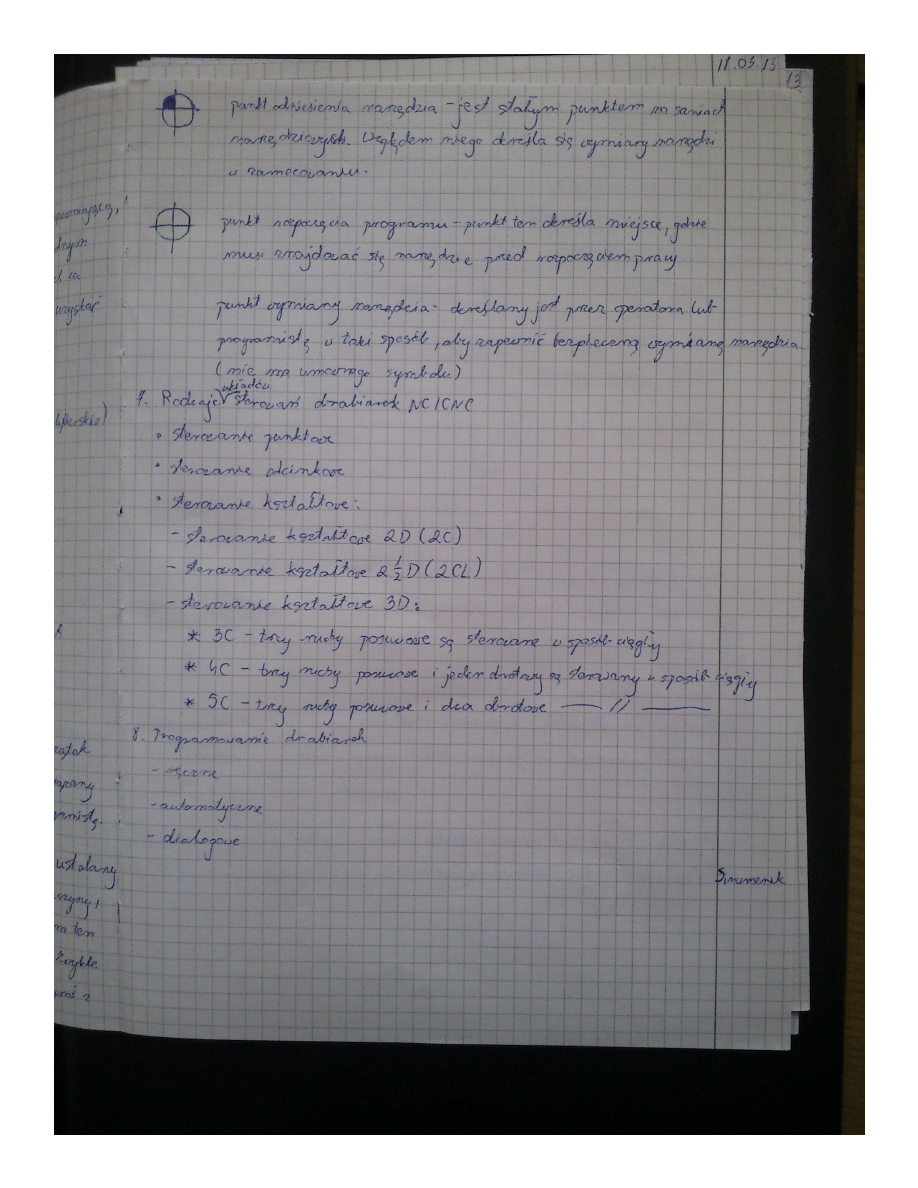 18.03.13
13
punkt odniesienia narzędzia - jest stałym punktem na saniach
narzędziowych. Względem niego określa się wymiary narzędzi
w zamocowaniu.
punkt rozpoczęcia programu - punkt ten określa miejsce, gdzie
musi znajdować się narzędzie przed rozpoczęciem pracy
punkt wymiany narzędzia - określany jest przez operatora lub
programistę w taki sposób, aby zapewnić bezpieczną wymianę narzędzia
(nie ma umownego symbolu)
układów
7. Rodzaje sterowań obrabiarek NC/CNC
• sterowanie punktowe
• sterowanie odcinkowe
• sterowanie kształtowe:
- sterowanie kształtowe 2D (2C)
- sterowanie kształtowe 2 1/2 D (2CL)
- sterowanie kształtowe 3D:
* 3C - trzy ruchy posuwowe są sterowane w sposób ciągły
* 4C - trzy ruchy posuwowe i jeden obrotowy są sterowany w sposób ciągły
* 5C - trzy ruchy posuwowe i dwa obrotowe — // —
8. Programowanie obrabiarek
- ręczne
- automatyczne
- dialogowe
ustalany